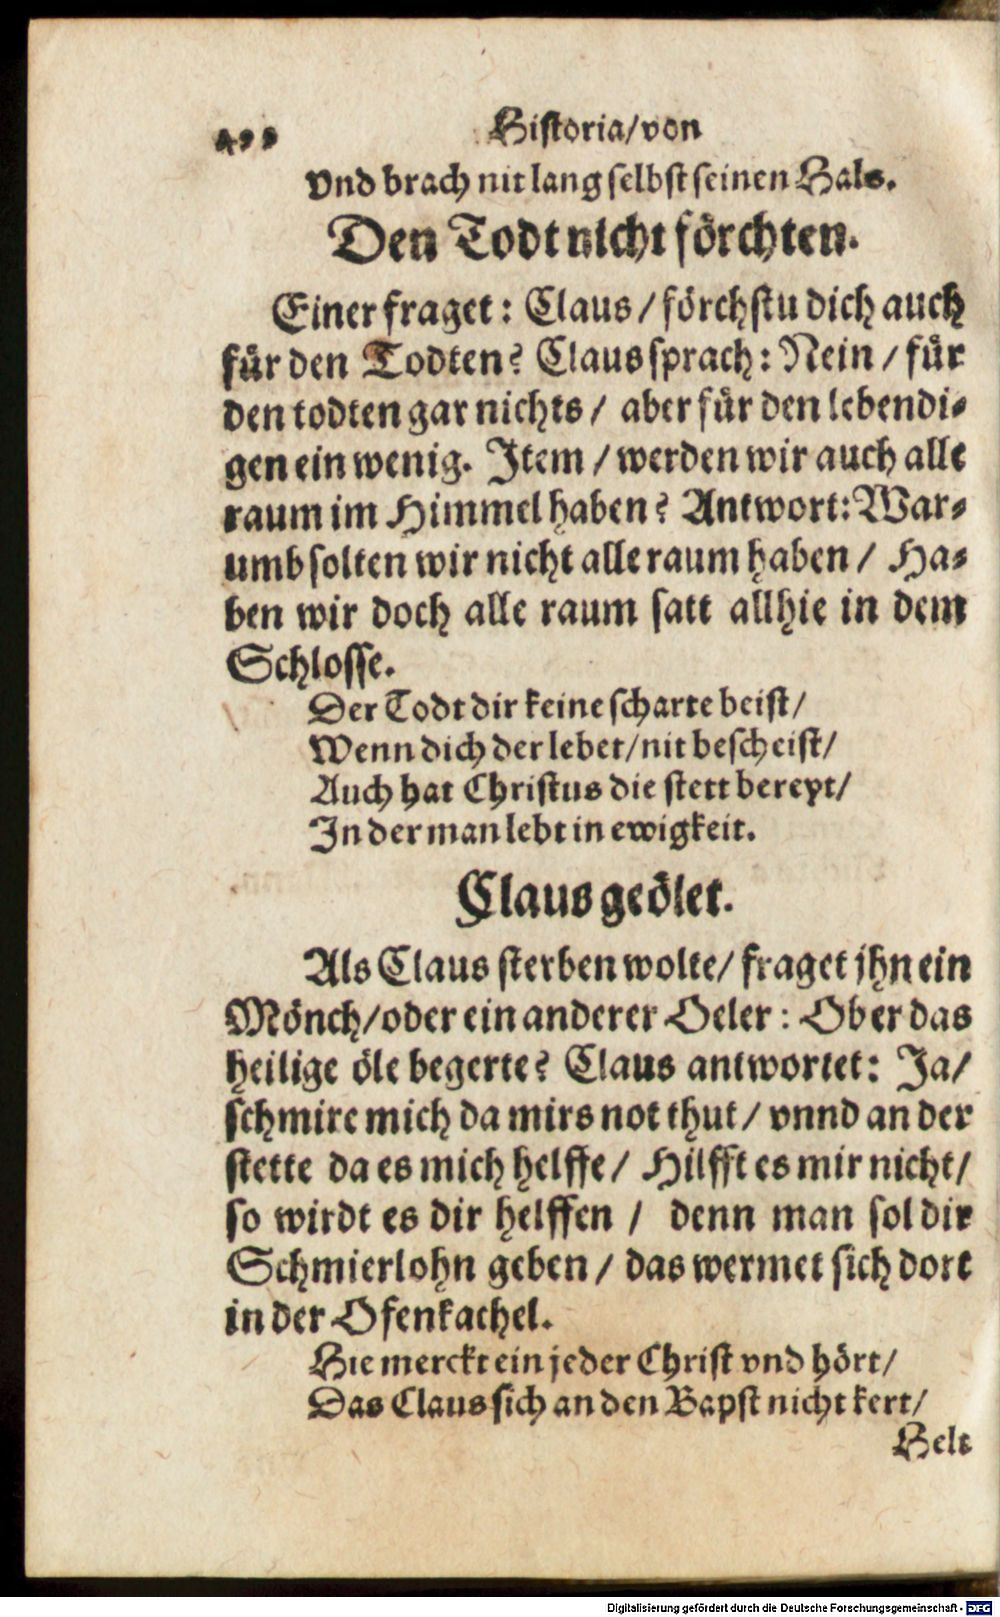 Historia/von
vnd brach nit lang selbst seinen Hals.
Den Todt nicht förchten.
Einer fraget: Claus/förchstu dich auch
für den Todten? Claus sprach: Nein/für
den todten gar nichts/ aber für den lebendi-
gen ein wenig. Item/werden wir auch alle
raum im Himmel haben? Antwort: War-
umb solten wir nicht alle raum haben/ Ha-
ben wir doch alle raum satt allhie in dem
Schlosse.
Der Todt dir keine scharte beist/
Wenn dich der lebet/nit bescheist/
Auch hat Christus die stett bereyt/
In der man lebt in ewigkeit.
Claus geölet.
Als Claus sterben wolte/fraget jhn ein
Mönch/oder ein anderer Oeler: Ob er das
heilige öle begerte? Claus antwortet: Ja/
schmire mich da mirs not thut/ vnnd an der
stette da es mich helffe/ Hilfft es mir nicht/
so wirdt es dir helffen/ denn man sol dir
Schmierlohn geben/ das wermet sich dort
in der Ofenkachel.
Hie merckt ein jeder Christ vnd hört/
Das Claus sich an den Bapst nicht kert/
Helt
Digitalisierung gefördert durch die Deutsche Forschungsgemeinschaft - DFG